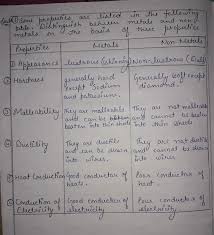 Some properties are listed in the following
table. Distinguish between metals and non-
metals on the basis of these properties
Properties Metals Non-Metals
① Appearance lustrous (shining) Non-lustrous (Dull)
② Hardness generally hard Generally soft except
except Sodium diamond.
and potassium.
③ Malleability They are malleable They are not malleable
and can be beaten and cannot be beaten
into thin sheets into thin sheets
④ Ductility They are ductile They are not ductile
and can be drawn and cannot be drawn
into wires. into wires.
⑤ Heat Conduction Good conductor of Poor conductor of
heat. heat.
⑥ Conduction of Good conductor of Poor conductor of
Electricity electricity electricity